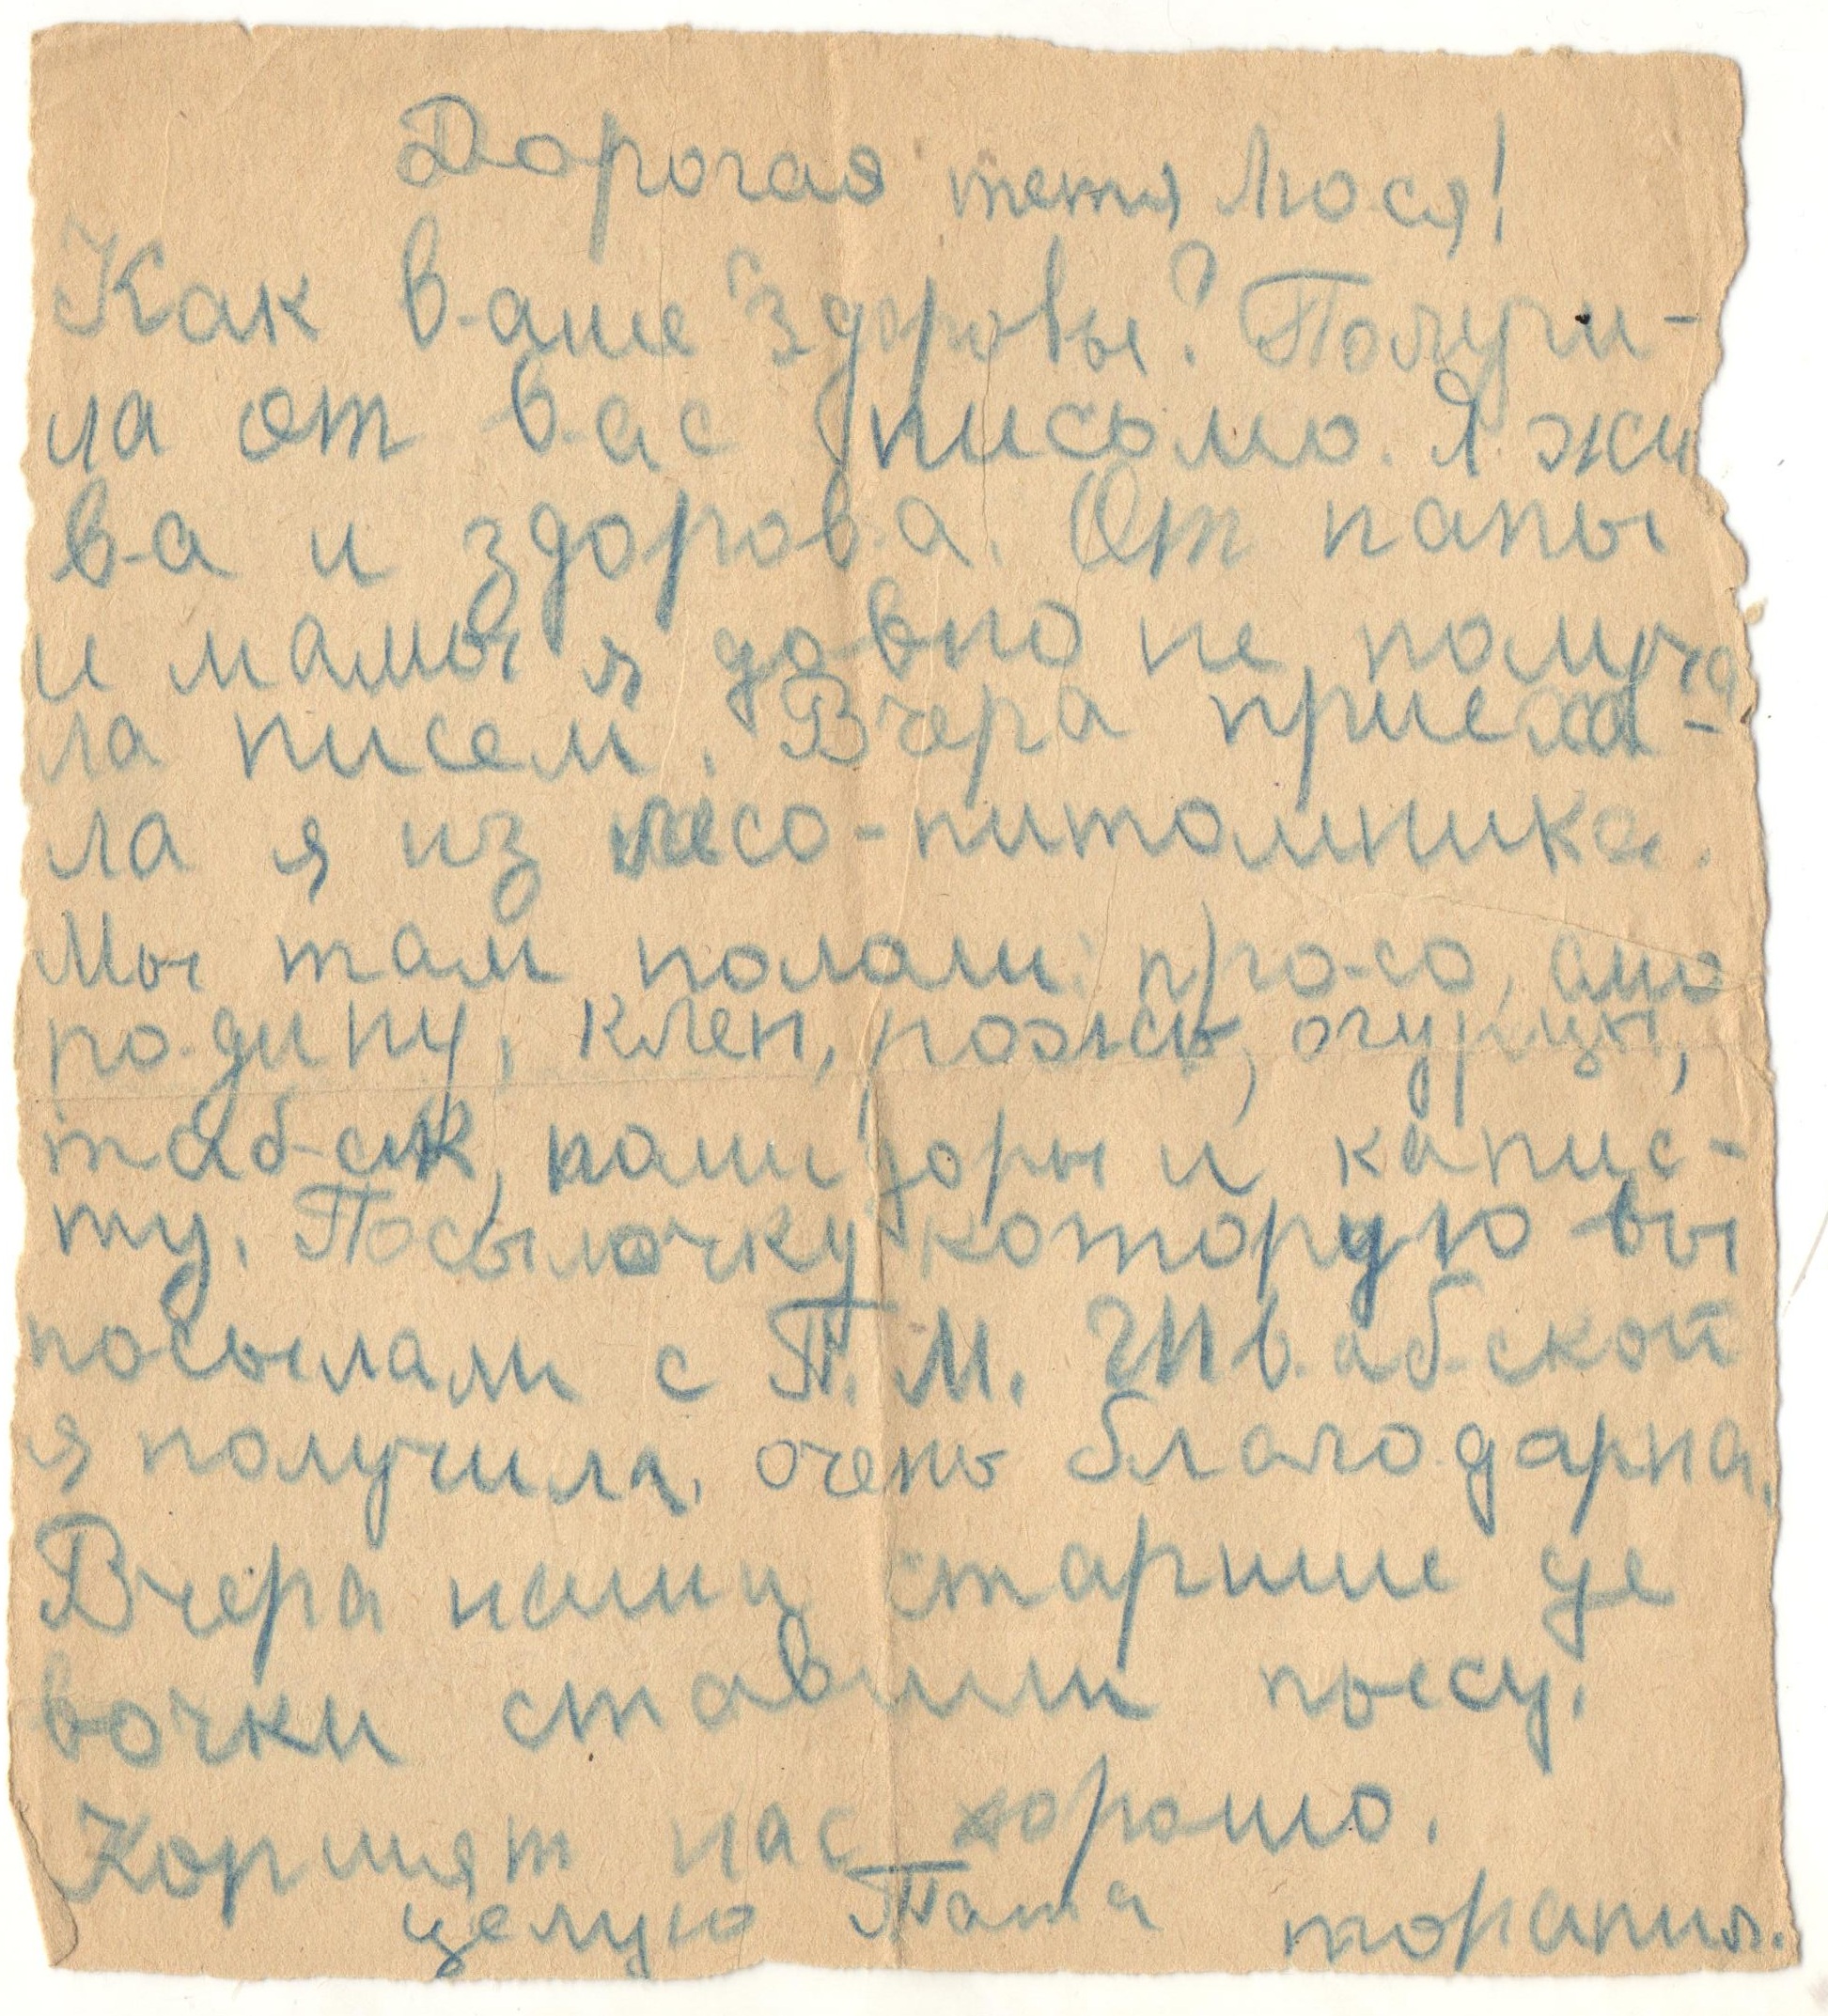 Дорогая тетя Люся!
Как ваше здоровье? Получи-
ла от вас письмо. Я жи
ва и здорова. От папы
и мамы я давно не получа
ла писем. Вчера приеха-
ла я из лесо-питомника.
Мы там пололи: просо, смо
родину, клен, рожь, огурцы,
табак, памидоры и капус-
ту. Посылочку которую вы
посылали с П. М. Швабской
я получила, очень благодарна.
Вчера наши старшие де
вочки ставили пьесу.
Кормят нас хорошо.
целую Тата